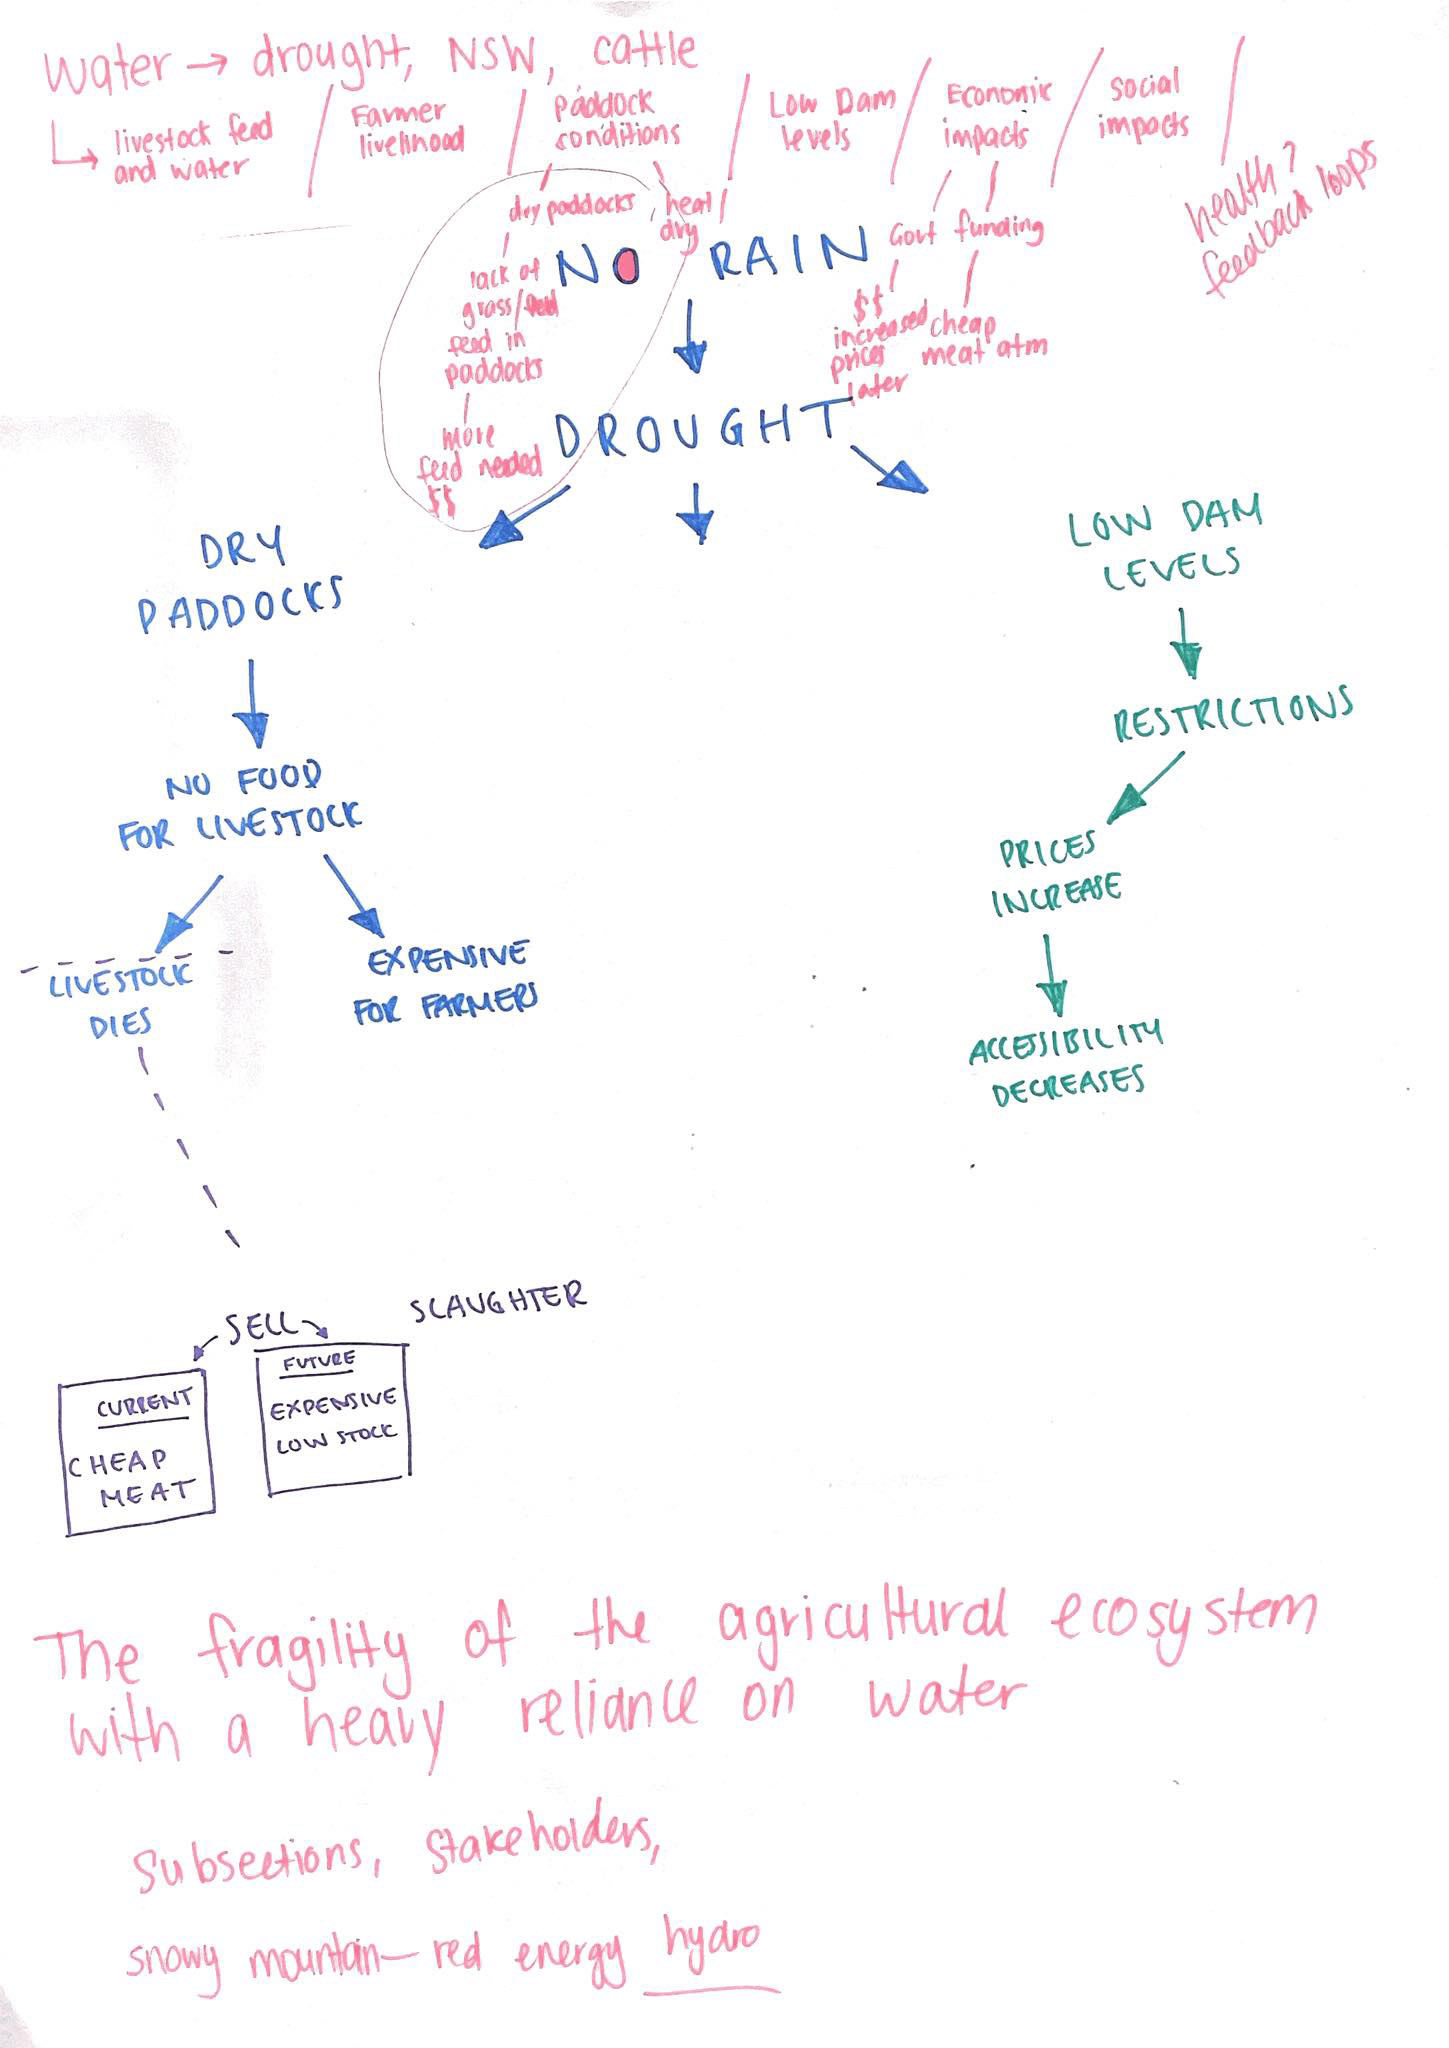 Water → drought, NSW, cattle
↳ livestock feed and water / Farmer livelihood / Paddock conditions / Low Dam levels / Economic impacts / social impacts /
health?
feedback loops
dry paddocks
heat/
dry
lack of
grass/
feed in
paddocks
more
feed needed
$$
Govt funding
$$
increased
prices
later
cheap
meat atm
NO RAIN
DROUGHT
DRY
PADDOCKS
NO FOOD
FOR LIVESTOCK
LIVESTOCK
DIES
EXPENSIVE
FOR FARMERS
LOW DAM
LEVELS
RESTRICTIONS
PRICES
INCREASE
ACCESSIBILITY
DECREASES
SELL
SLAUGHTER
CURRENT
CHEAP
MEAT
FUTURE
EXPENSIVE
LOW STOCK
The fragility of the agricultural ecosystem
with a heavy reliance on water
Subsections, stakeholders,
snowy mountain — red energy hydro